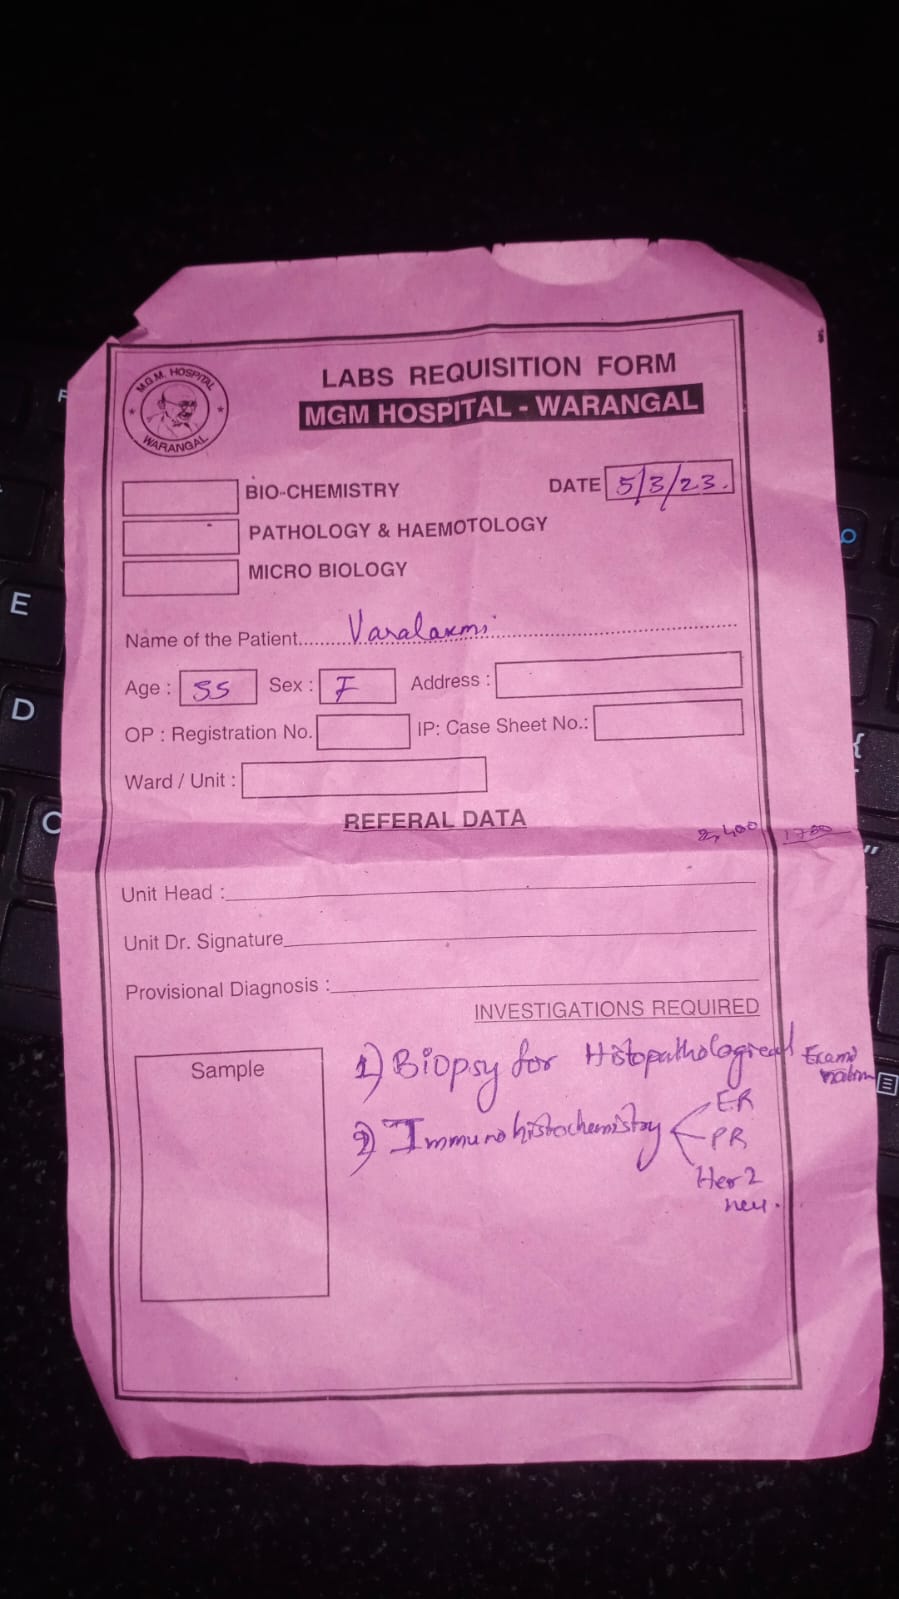 M.G.M. HOSPITAL
WARANGAL
LABS REQUISITION FORM
MGM HOSPITAL - WARANGAL
BIO-CHEMISTRY
DATE 5/3/23.
PATHOLOGY & HAEMOTOLOGY
MICRO BIOLOGY
Name of the Patient..... Varalaxmi
Age : 55 Sex : F Address :
OP : Registration No. IP: Case Sheet No.:
Ward / Unit :
REFERAL DATA
Unit Head :
Unit Dr. Signature
Provisional Diagnosis :
INVESTIGATIONS REQUIRED
Sample
1) Biopsy for Histopathological Examination
2) Immunohistochemistry
ER
PR
Her2
neu.
E
D
C